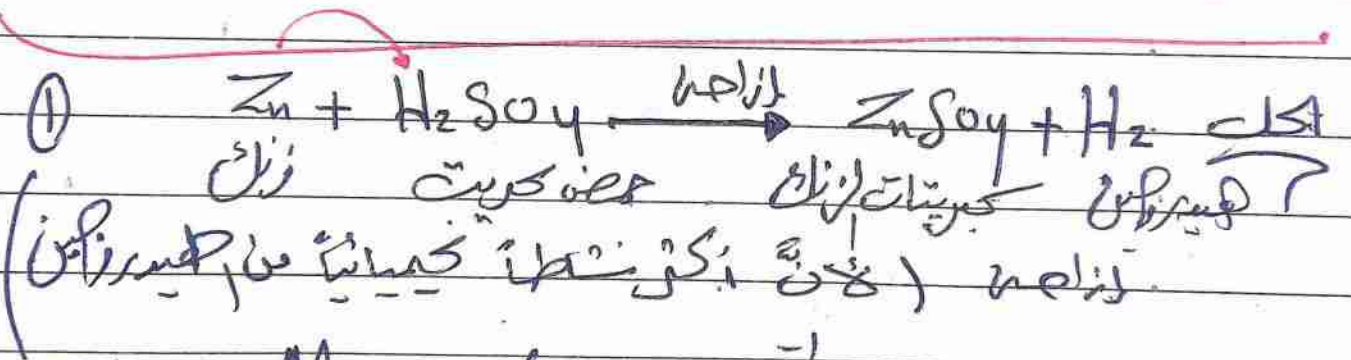 ① Zn + H₂SO₄ إزاحة → ZnSO₄ + H₂ أكل
زنك حمض كبريت كبريتات الزنك هيدروجين
إزاحة (لأنّه أكثر نشاطاً كيميائياً من الهيدروجين)